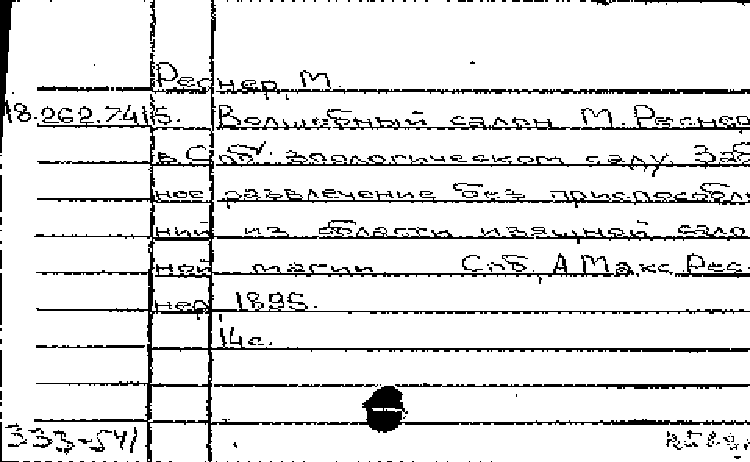 Реснер, М.
18.262.7415. Волшебный салон М. Реснер
в Спб. зоологическом саду. Заб
ное развлечение без приспособл
ний из области изящной сало
ной магии Спб, А Макс Рес-
нер 1895.
14с.
333-541